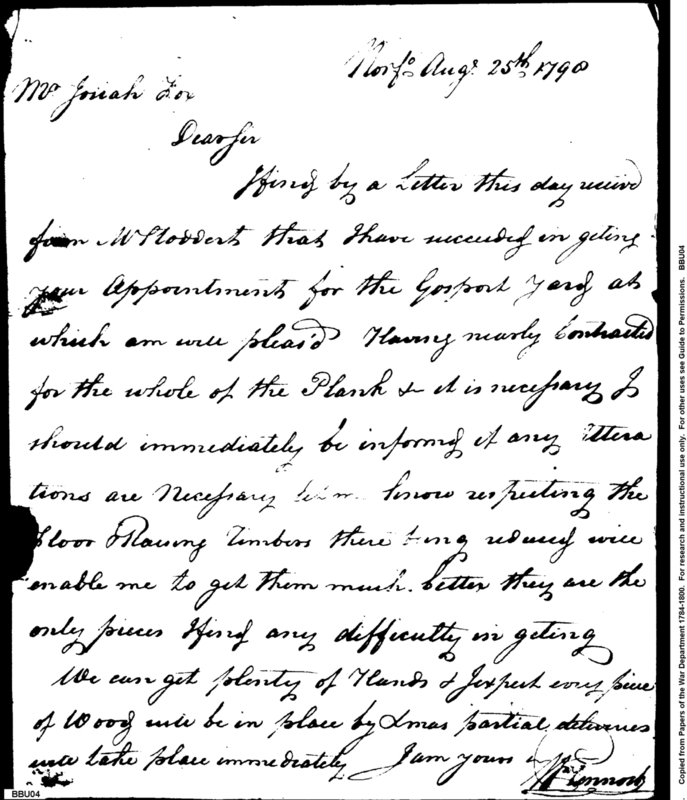 Norfo. Augt. 25th 1798
Mr Josiah Fox
Dear Sir
I find by a Letter this day receivd
from Mr Stoddert that I have succeeded in geting
your Appointment for the Gosport Yard at
which am well pleas'd Having nearly Contracted
for the whole of the Plank & it is necessary I
should immediately be informd if any Altera
tions are Necessary let me know respecting the
Floor & Raising Timbers there being reduced will
enable me to get them much better they are the
only pieces I find any difficulty in geting
We can get plenty of Hands & I expect every piece
of Wood will be in place by Xmas partial deliveries
will take place immediately I am yours
Wm Pennock
BBU04
Copied from Papers of the War Department 1784-1800. For research and instructional use only. For other uses see Guide to Permissions. BBU04